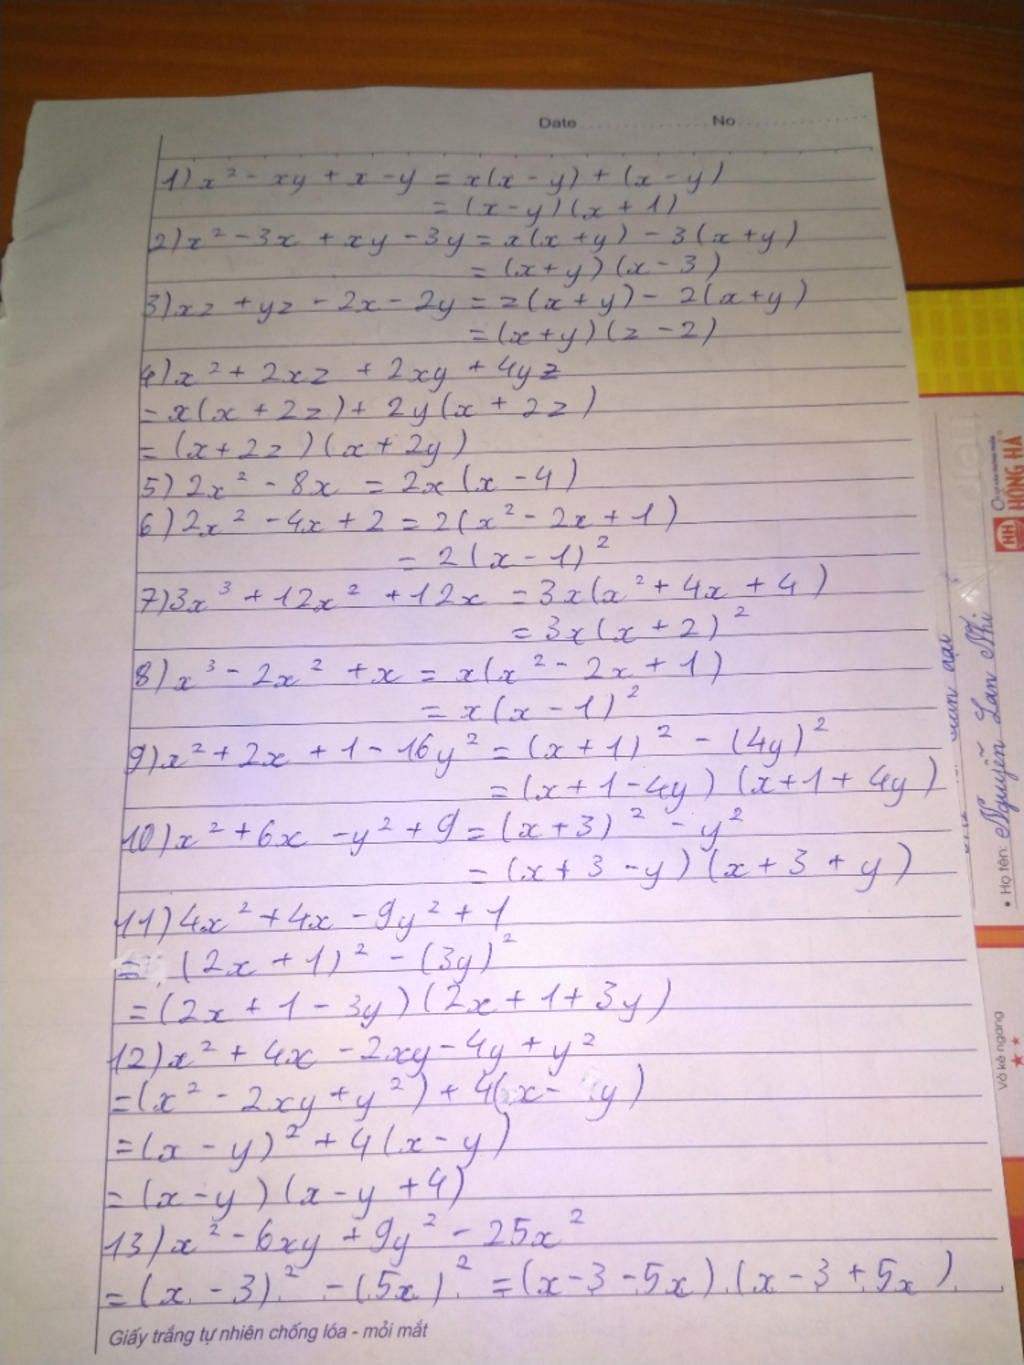 Date .................... No ....................
1) x² - xy + x - y = x(x - y) + (x - y)
= (x - y)(x + 1)
2) x² - 3x + xy - 3y = x(x + y) - 3(x + y)
= (x + y)(x - 3)
3) xz + yz - 2x - 2y = z(x + y) - 2(x + y)
= (x + y)(z - 2)
4) x² + 2xz + 2xy + 4yz
= x(x + 2z) + 2y(x + 2z)
= (x + 2z)(x + 2y)
5) 2x² - 8x = 2x(x - 4)
6) 2x² - 4x + 2 = 2(x² - 2x + 1)
= 2(x - 1)²
7) 3x³ + 12x² + 12x = 3x(x² + 4x + 4)
= 3x(x + 2)²
8) x³ - 2x² + x = x(x² - 2x + 1)
= x(x - 1)²
9) x² + 2x + 1 - 16y² = (x + 1)² - (4y)²
= (x + 1 - 4y)(x + 1 + 4y)
10) x² + 6x - y² + 9 = (x + 3)² - y²
= (x + 3 - y)(x + 3 + y)
11) 4x² + 4x - 9y² + 1
= (2x + 1)² - (3y)²
= (2x + 1 - 3y)(2x + 1 + 3y)
12) x² + 4x - 2xy - 4y + y²
= (x² - 2xy + y²) + 4(x - y)
= (x - y)² + 4(x - y)
= (x - y)(x - y + 4)
13) x² - 6xy + 9y² - 25x²
= (x - 3)² - (5x)² = (x - 3 - 5x).(x - 3 + 5x)
Giấy trắng tự nhiên chống lóa - mỏi mắt
HH HỒNG HÀ
• Họ tên: Nguyễn Lan Nhi
Vở kẻ ngang